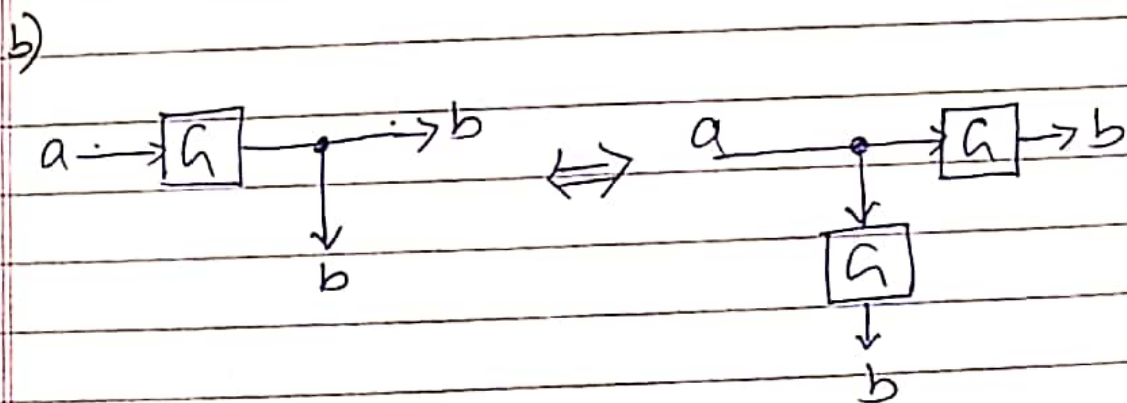 b)
a G b a G b
b G
b